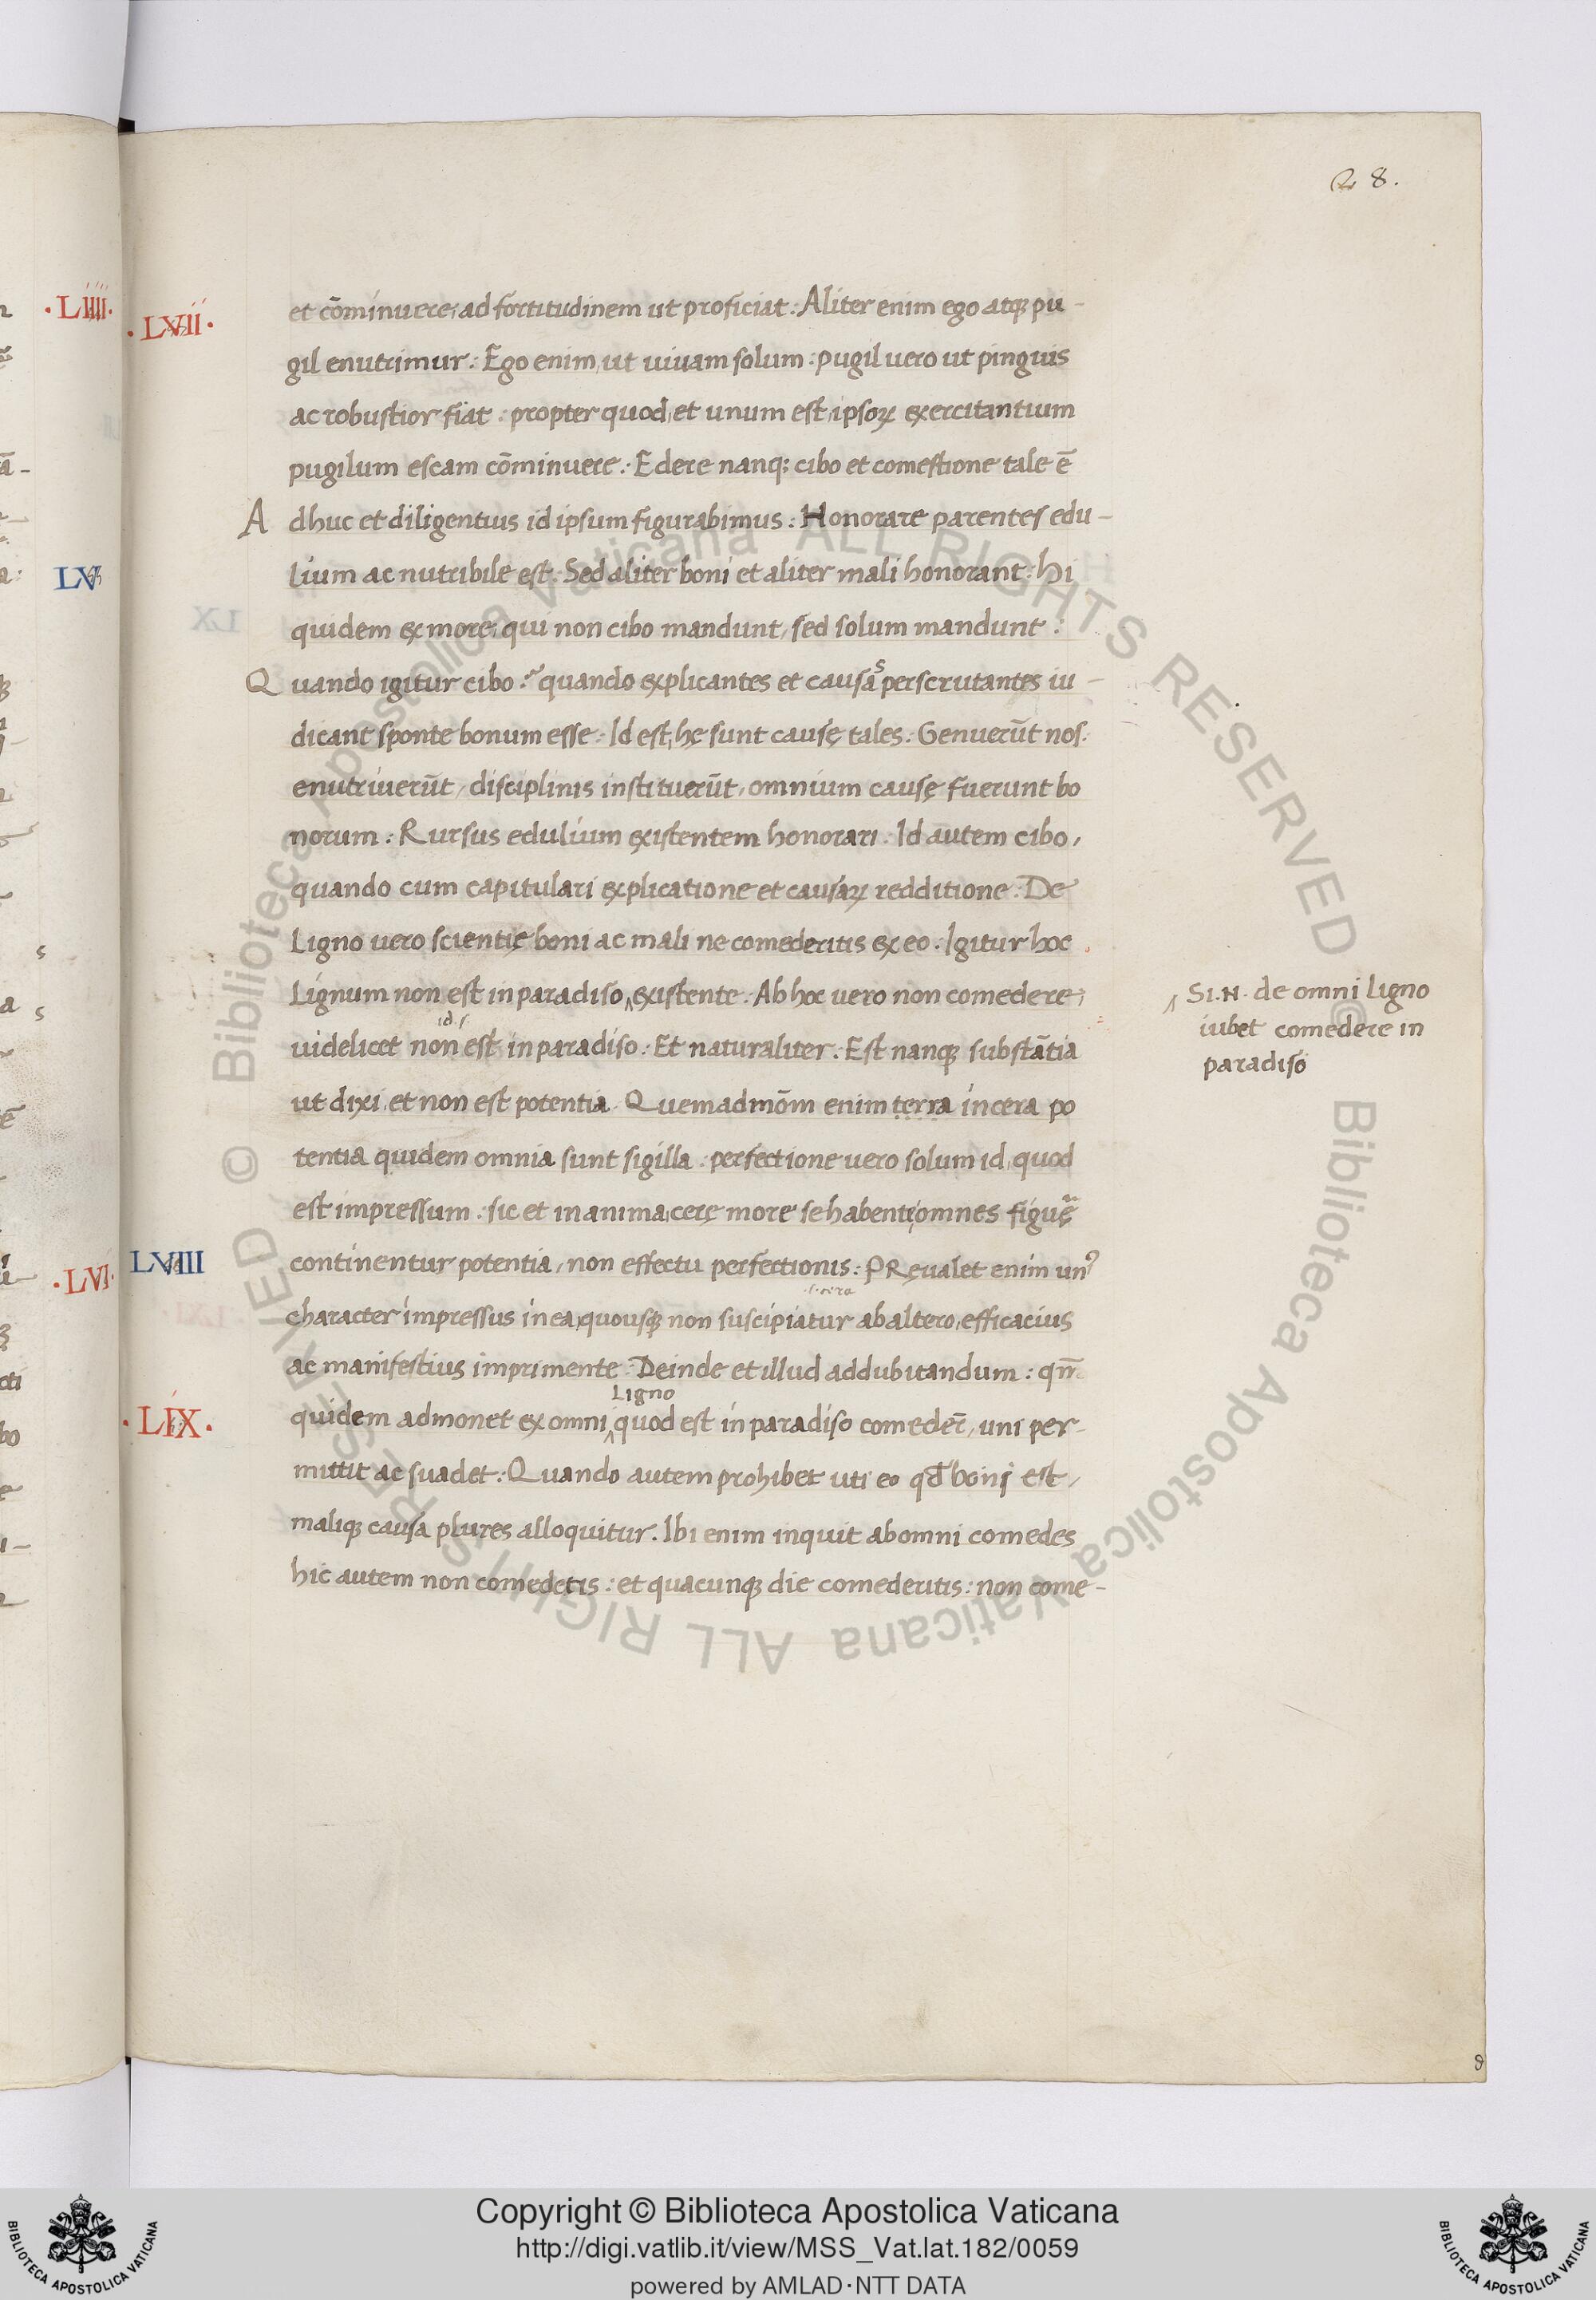 28.
·LIIII·
·LVII·
et cōminuere, ad fortitudinem ut proficiat: Aliter enim ego atqꝫ pu-
gil enutrimur: Ego enim, ut uiuam solum: pugil uero ut pinguis
ac robustior fiat: propter quod, et unum est, ipsoꝝ exercitantium
pugilum escam cōminuere: Edere nanqꝫ cibo et comestione tale ē
Adhuc et diligentius id ipsum figurabimus: Honorare parentes edu-
LV
lium ac nutribile est. Sed aliter boni et aliter mali honorant: hi
quidem ex more, qui non cibo mandunt, sed solum mandunt:
Quando igitur cibo? quando explicantes et causas perscrutantes iu-
dicant sponte bonum esse. Id est, hę sunt causę tales: Genuerūt nos:
enutriuerūt, disciplinis instituerūt, omnium causę fuerunt bo
norum: Rursus edulium existentem honorari. Id autem cibo,
quando cum capitulari explicatione et causaꝝ redditione: De
Ligno uero scientię boni ac mali ne comederitis ex eo. Igitur hoc
Lignum non est in paradiso ‸existente. Ab hoc uero non comedere,
‸ SI.N. de omni ligno
iubet comedere in
paradiso
id.
uidelicet non est in paradiso: Et naturaliter: Est nanqꝫ substātia
ut dixi, et non est potentia. Quemadmōm enim terra in cera po
tentia quidem omnia sunt sigilla: perfectione uero solum id, quod
est impressum: sic et in anima, cerę more se habenti, omnes figuręͣ
·LVI·
LVIII
continentur potentia, non effectu perfectionis: PRęualet enim unꝰ
character impressus in ea, quousqꝫ non suscipiatur ab altero, efficacius
ac manifestius imprimente. Deinde et illud addubitandum: qm̄
Ligno
·LIX·
quidem admonet ex omni ‸quod est in paradiso comeder̄, uni per-
mittit ac suadet: Quando autem prohibet uti eo qd̄ boni est,
maliqꝫ causa plures alloquitur. Ibi enim inquit ab omni comedes
hic autem non comedetis: et quacunqꝫ die comederitis: non come-
Copyright © Biblioteca Apostolica Vaticana
http://digi.vatlib.it/view/MSS_Vat.lat.182/0059
powered by AMLAD·NTT DATA
BIBLIOTECA APOSTOLICA VATICANA
BIBLIOTECA APOSTOLICA VATICANA
© Biblioteca Apostolica Vaticana ALL RIGHTS RESERVED © Biblioteca Apostolica Vaticana ALL RIGHTS RESERVED